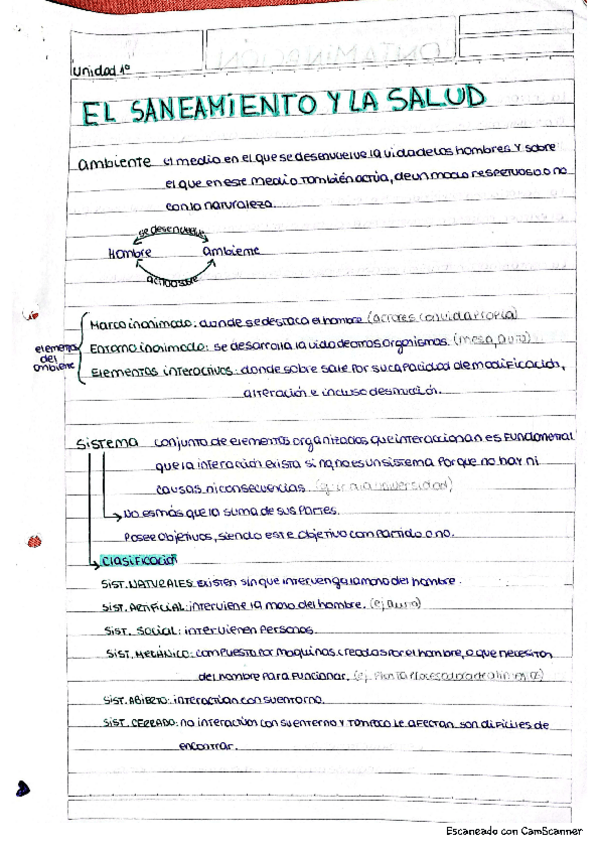 Unidad 1º
EL SANEAMIENTO Y LA SALUD
ambiente el medio en el que se desenvuelve la vida de los hombres y sobre
el que en este medio también actúa, de un modo respetuoso o no
con la naturaleza.
se desenvuelve
Hombre ambiente
actúa sobre
Marco inanimado: donde se destaca el hombre (actores con vida propia)
elementos del ambiente
Entorno inanimado: se desarrolla la vida de otros organismos. (mesa, auto)
Elementos interactivos: donde sobre sale por su capacidad de modificación,
alteración e incluso destrucción.
Sistema conjunto de elementos organizados que interaccionan es FUNDAMENTAL
que la interacción exista si no, no es un sistema porque no hay ni
causas ni consecuencias. universidad)
No es más que la suma de sus partes.
Posee objetivos, siendo este objetivo compartido o no.
Clasificación
SIST. NATURALES: existen sin que intervenga la mano del hombre.
SIST. Artificial: interviene la mano del hombre. (ej auto)
SIST. Social: intervienen personas.
SIST. MECÁNICO: compuesto por maquinas creadas por el hombre, o que necesitan
del hombre para funcionar. (ej. Planta
SIST. ABIERTO: interactúan con su entorno.
SIST. CERRADO: no interactúa con su enterno y tampoco le afectan. son dificiles de
encontrar.
Escaneado con CamScanner